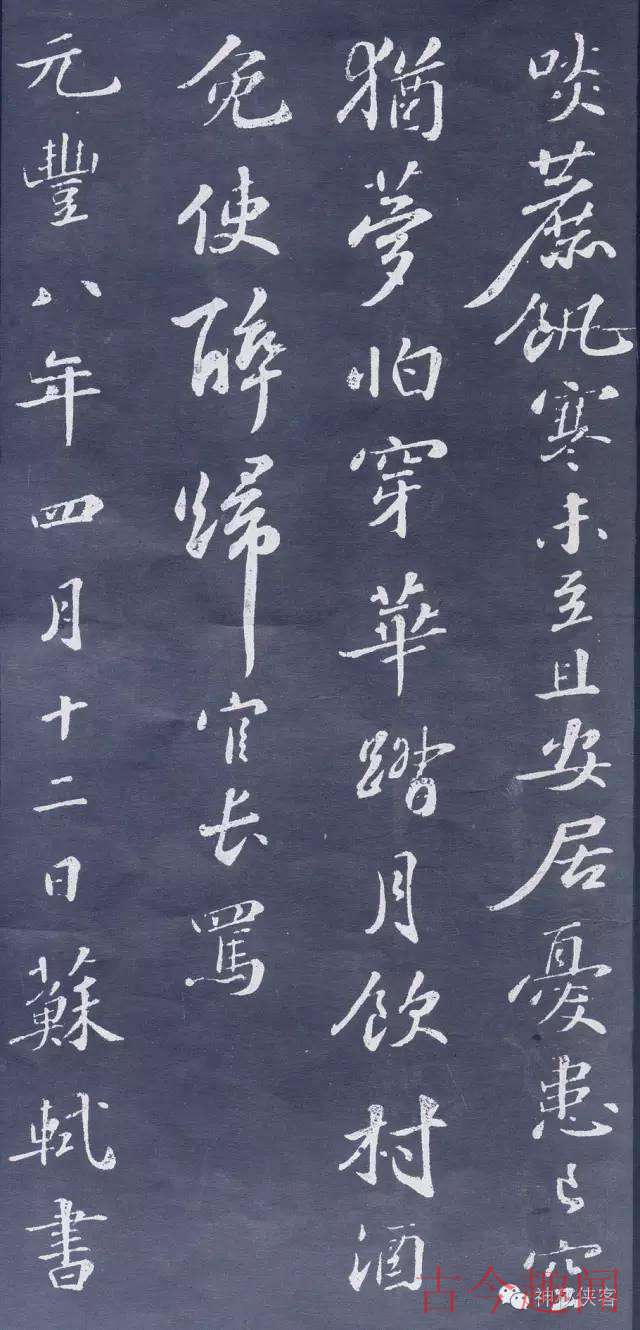 啖蔗飢寒未至且安居憂患已空
猶夢怕穿華踏月飲村酒
免使醉歸官長罵
元豐八年四月十二日蘇軾書
古今趣闻
神 侠客